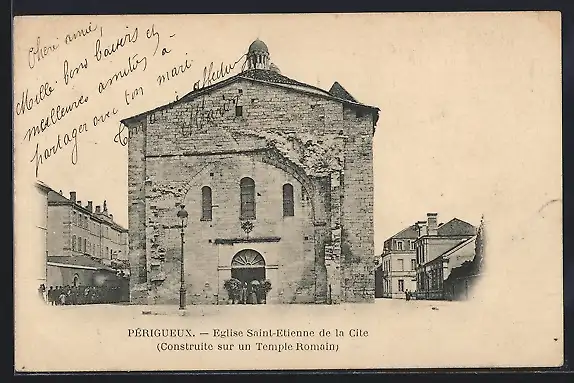 Chère amie,
Mille bons baisers et
meilleures amitiés à
partager avec ton mari
PÉRIGUEUX. — Eglise Saint-Etienne de la Cite
(Construite sur un Temple Romain)